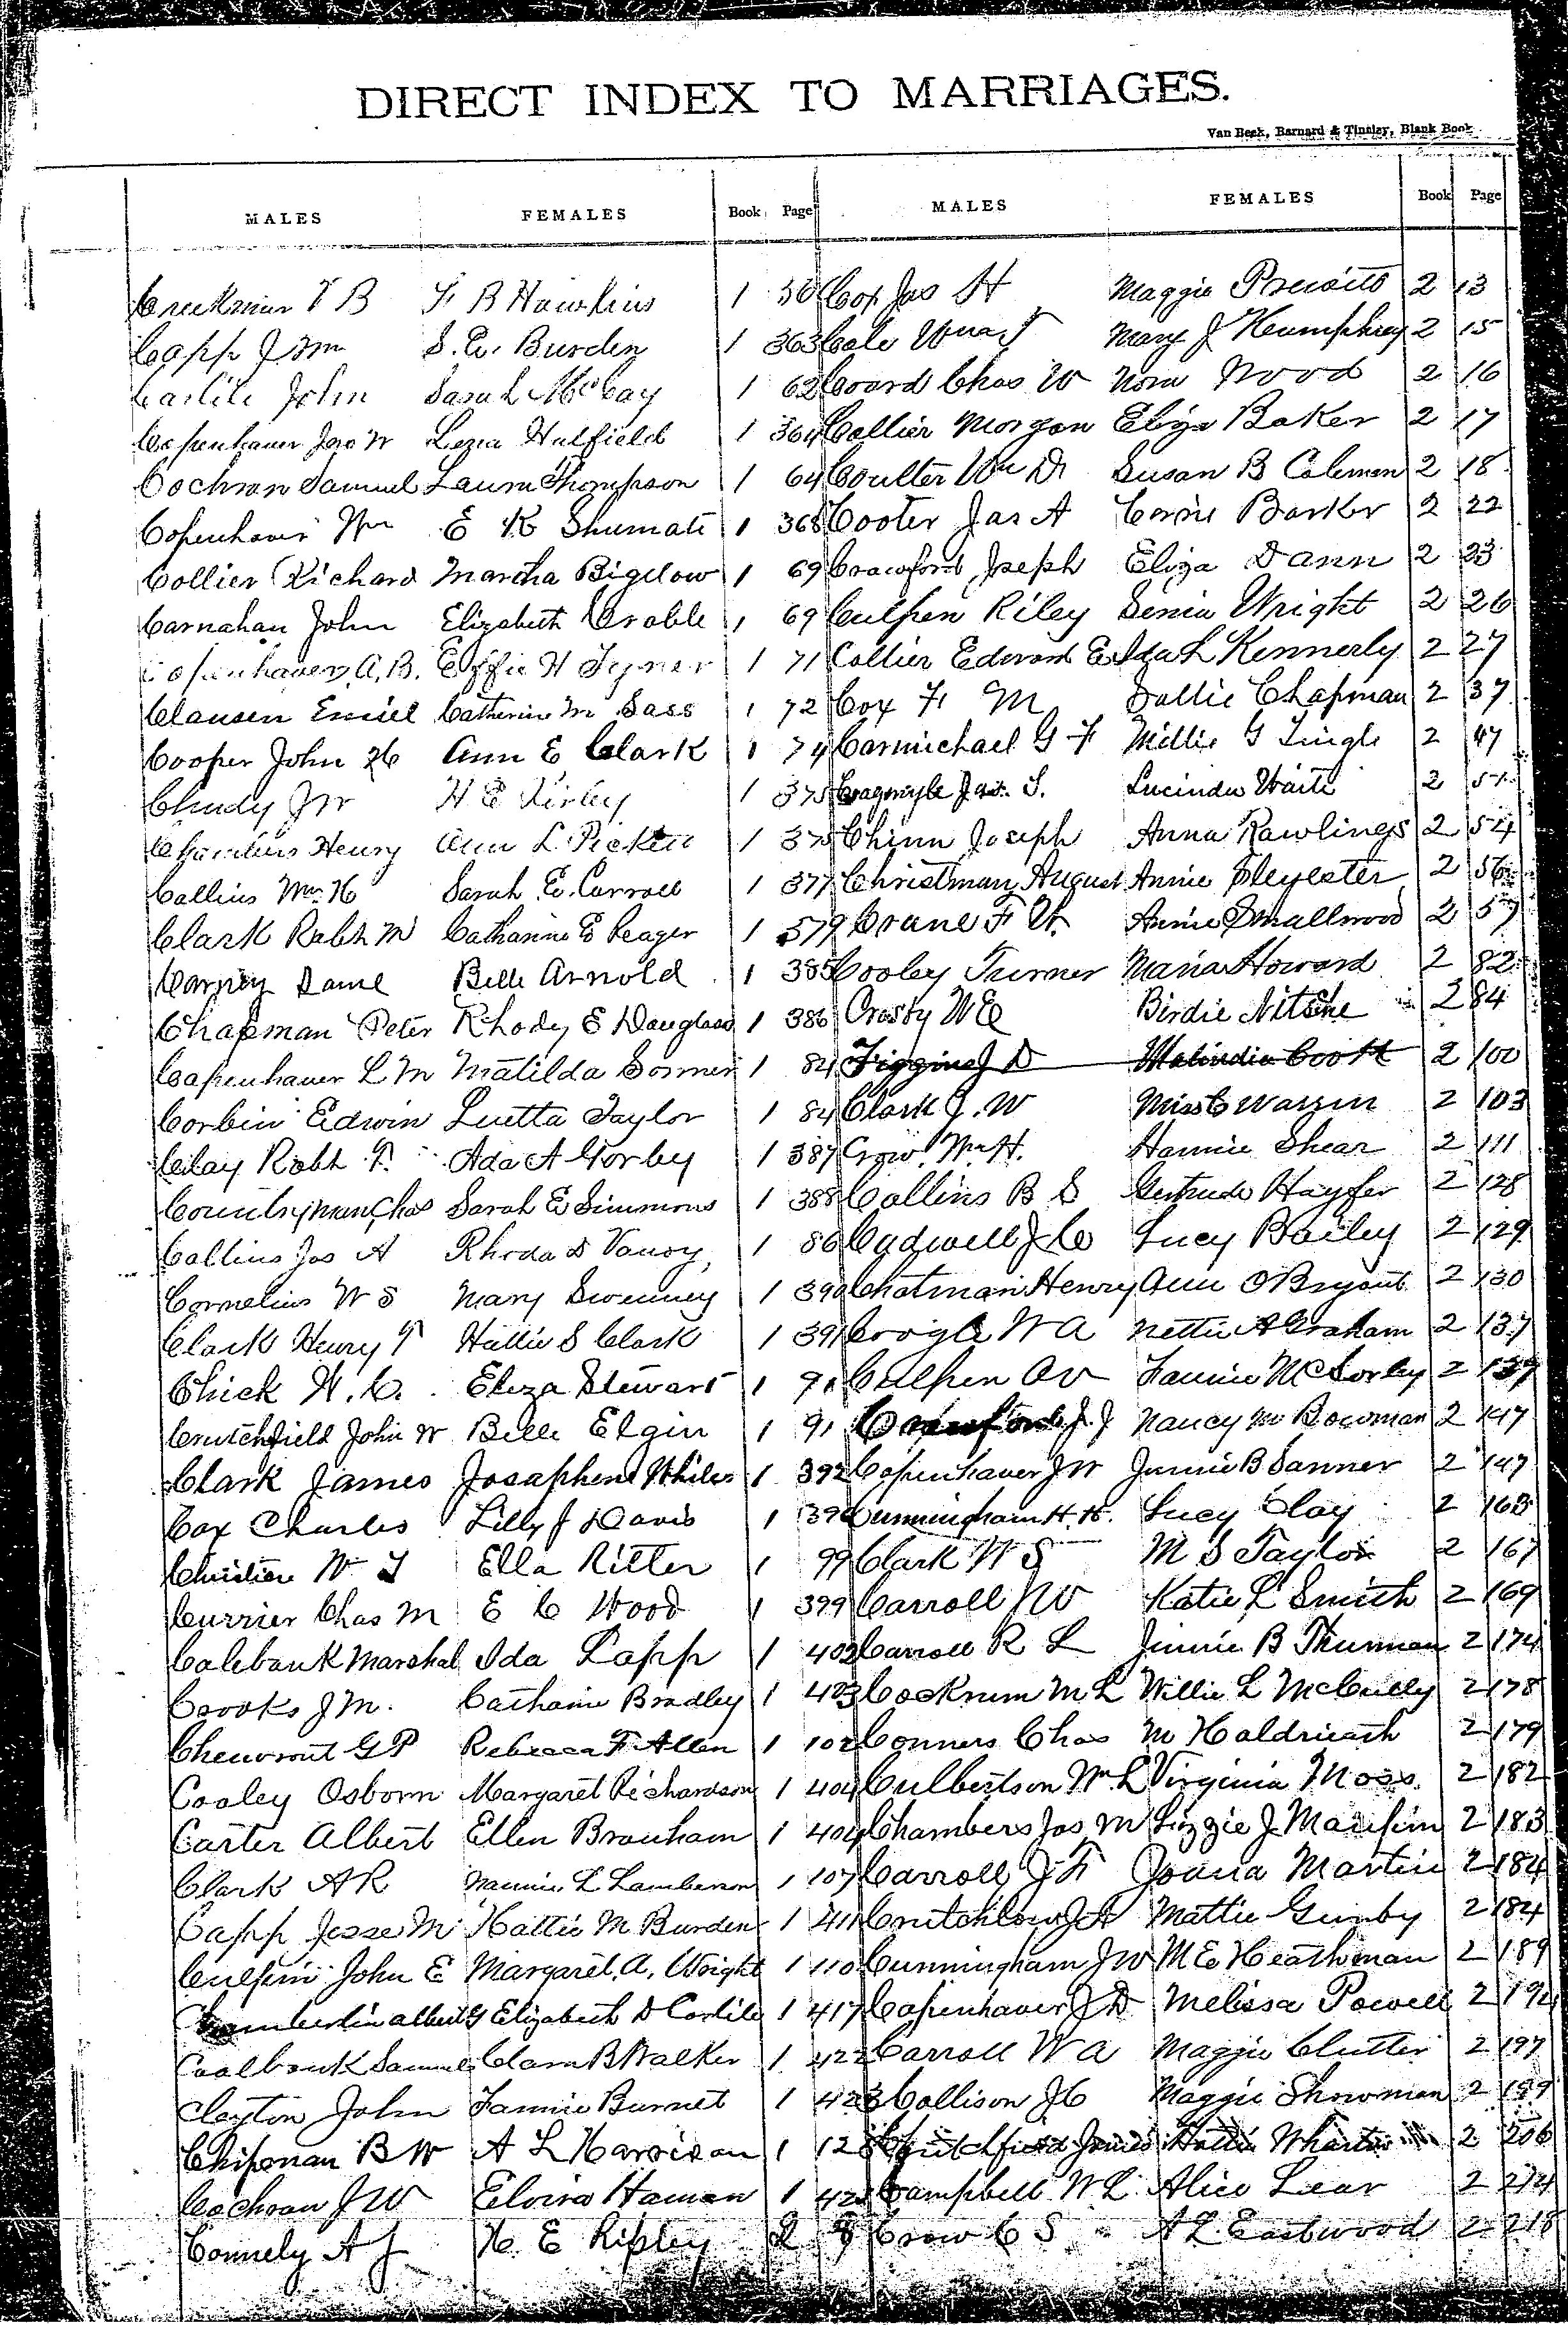 DIRECT INDEX TO MARRIAGES.
Van Beek, Barnard & Tinsley, Blank Book
MALES FEMALES Book Page MALES FEMALES Book Page
T B F B Hawkins 1 Cox Jas H Maggie Prewitt 2 13
Capp J Wm S. E. Burden 1 363 Cale Wm J Mary J Humphrey 2 15
Carlile John Sarah McCay 1 62 Coard Chas W Nora Wood 2 16
Copenhaver Jno W Lezia Hatfield 1 364 Collier Morgan Eliza Baker 2 17
Cochran Samuel Laura Thompson 1 64 Coulter Wm D Susan B Coleman 2 18
Copenhaver Wm E K Shumate 1 368 Cooter Jas A Corrie Barker 2 22
Collier Richard Martha Bigelow 1 69 Crawford Joseph Eliza Dann 2 23
Carnahan John Elizabeth Crable 1 69 Culpen Riley Senia Wright 2 26
Copenhaver A, B. Effie H Tyner 1 71 Collier Edward E Ida L Kennerly 2 27
Clausen Emiel Catherine M Sass 1 72 Cox F M Sallie Chapman 2 37
Cooper John H Ann E Clark 1 74 Carmichael G F Millie G Tingle 2 47
Chudy J W H E Kirley 1 375 Jas. S. Lucinda Waite 2
Chambers Henry Ann L Pickett 1 375 Chinn Joseph Anna Rawlings 2 54
Collins Wm H Sarah E. Carroll 1 377 Christman August Annie Sleyester 2 56
Clark Robt M Catharine E Peager 1 379 Crane F W. Annie Smallwood 2 57
Carney Danl Belle Arnold 1 385 Cooley Turner Maria Howard 2 82
Chapman Peter Rhody E Douglass 1 386 Crosby W E Birdie Nitsche 2 84
Copenhaver L M Matilda Sormer 1 84 Figgins J D Malindia Cook 2 100
Corbin Edwin Luetta Taylor 1 84 Clark J. W Miss C Warren 2 103
Clay Robt T. Ada A Gorby 1 387 Crow Wm H. Hannie Shear 2 111
Countryman Chas Sarah E Simmons 1 388 Collins B S Gertrude Hayfer 2 128
Collins Jas A Rhoda D Vanoy 1 86 Cadwell J C Lucy Bailey 2 129
Cornelius W S Mary Sweeney 1 390 Chatman Henry Ann O Bryant 2 130
Clark Henry T Hattie S Clark 1 391 Coogle W A Nettie A Graham 2 137
Chick H. C. Eliza Stewart 1 91 Culpen O V Fannie McSorley 2 139
Crutchfield John W Belle Elgin 1 91 Crawford J J Nancy M Bowman 2 147
Clark James Josaphene Whiles 1 392 Copenhaver J W Jennie B Sanner 2 147
Cox Charles Lilly J Davis 1 Cunningham H. H. Lucy Clay 2 163
Christian W T Ella Ritter 1 99 Clark W S M S Taylor 2 167
Currier Chas M E C Wood 1 399 Carroll N V Katie L Smith 2 169
Calebank Marshal Ida Lapp 1 402 Carroll R L Jinnie B Thurman 2 174
Crooks J M. Catharine Bradley 1 403 Cockrum M L Willie L McCully 2 178
Cheuvront G P Rebecca F Allen 1 102 Conners Chas M Haldrieath 2 179
Cooley Osborn Margaret Richardson 1 404 Culbertson Wm L Virginia Moss 2 182
Carter Albert Ellen Branham 1 404 Chambers Jas M Lizzie J Maupin 2 183
Clark A R Mannie L Lamberson 1 107 Carroll J F Joana Martin 2 184
Capp Jesse M Hattie M Burden 1 411 Critchlow J A Mattie Gunby 2 184
Culpin John E Margaret, A, Wright 1 110 Cunningham J W M E Heathman 2 189
Chamberlin Albert G Elizabeth D Carlile 1 417 Copenhaver J D Melissa Powell 2 194
Coalbank Samuel Clara B Walker 1 422 Carroll W A Maggie Clutter 2 197
Clayton John Fannie Burnet 1 423 Collison J C Maggie Showman 2 199
Chipman B W A L Harrison 1 128 Crutchfield James Hattie Wharton 2 206
Cochran J W Elvira Haman 1 Campbell W L Alice Lear 2 214
Connely A J H. E Ripley 2 8 Crow C S A L Eastwood 2 218